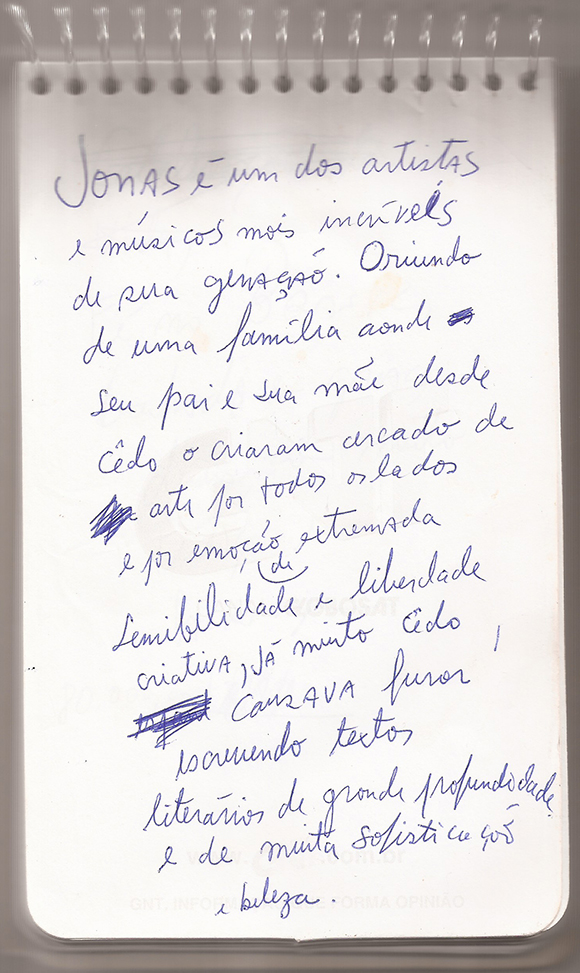 JONAS é um dos artistas
e músicos mais incríveis
de sua geração. Oriundo
de uma família aonde
seu pai e sua mãe desde
cêdo o criaram cercado de
arte por todos os lados
e por emoção extremada
de
sensibilidade e liberdade
criativa, JÁ muito cêdo,
CAUSAVA furor
escrevendo textos
literários de grande profundidade
e de muita sofisticação
e beleza.